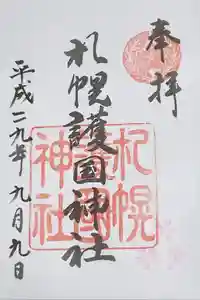 奉拝
札幌護国神社
平成二九年九月九日
札幌
護國
神社